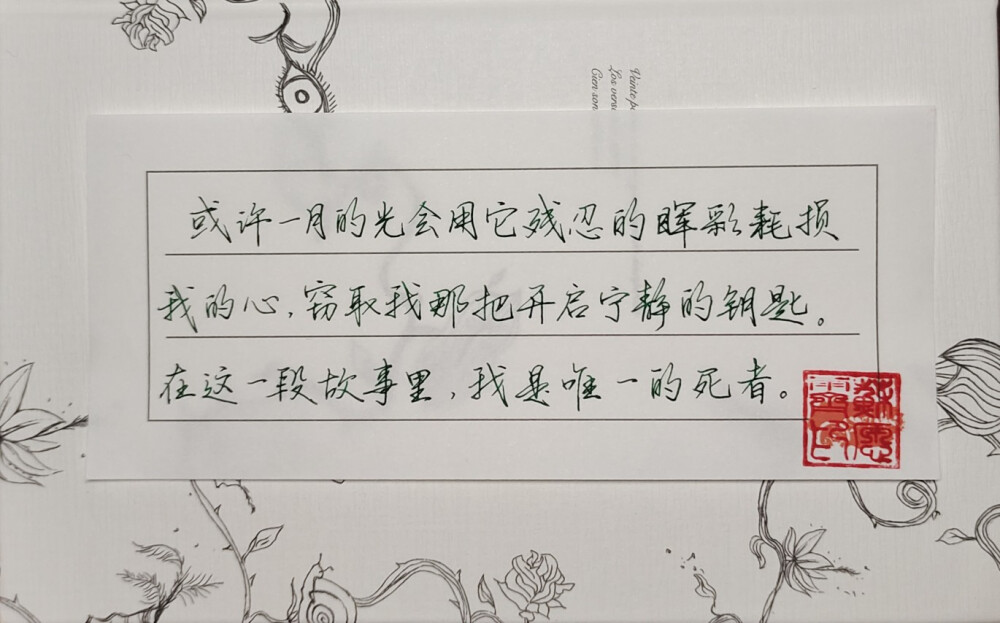 或许一月的光会用它残忍的晖彩耗损
我的心，窃取我那把开启宁静的钥匙。
在这一段故事里，我是唯一的死者。
Veinte
Los vers
Cien son